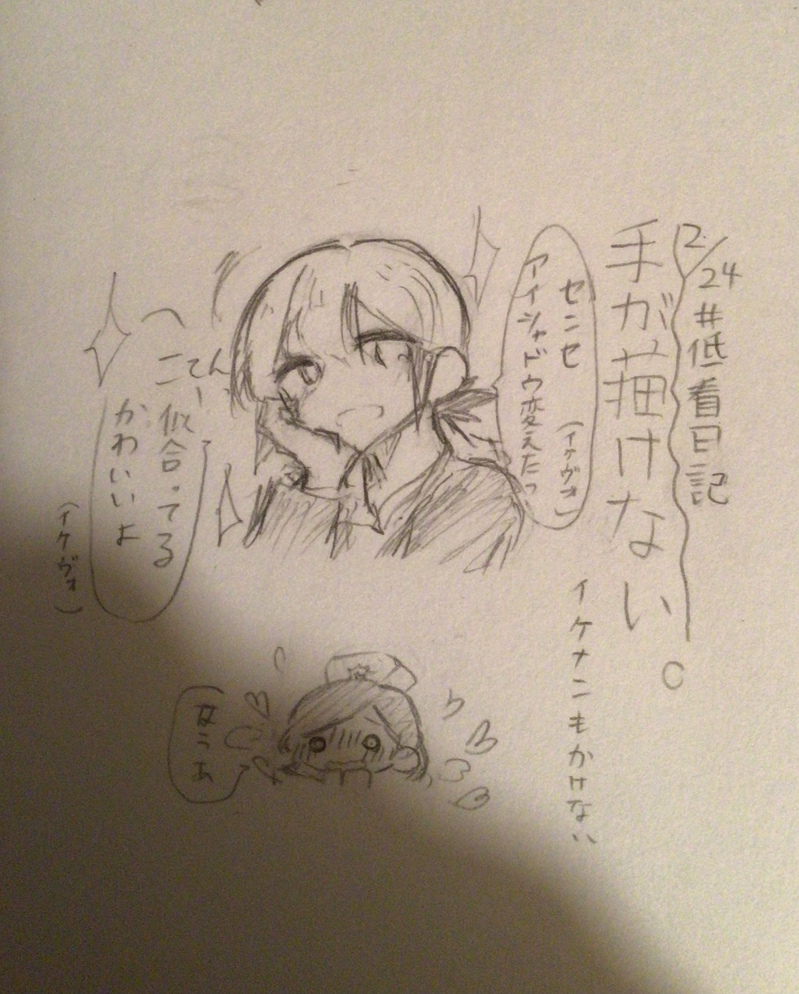 2/24 #低看日記
手が描けない。
イケナンもかけない
センセ
(イケヴォ)
アイシャドウ変えたっ
てんー
似合ってる
かわいいよ
(イケヴォ)